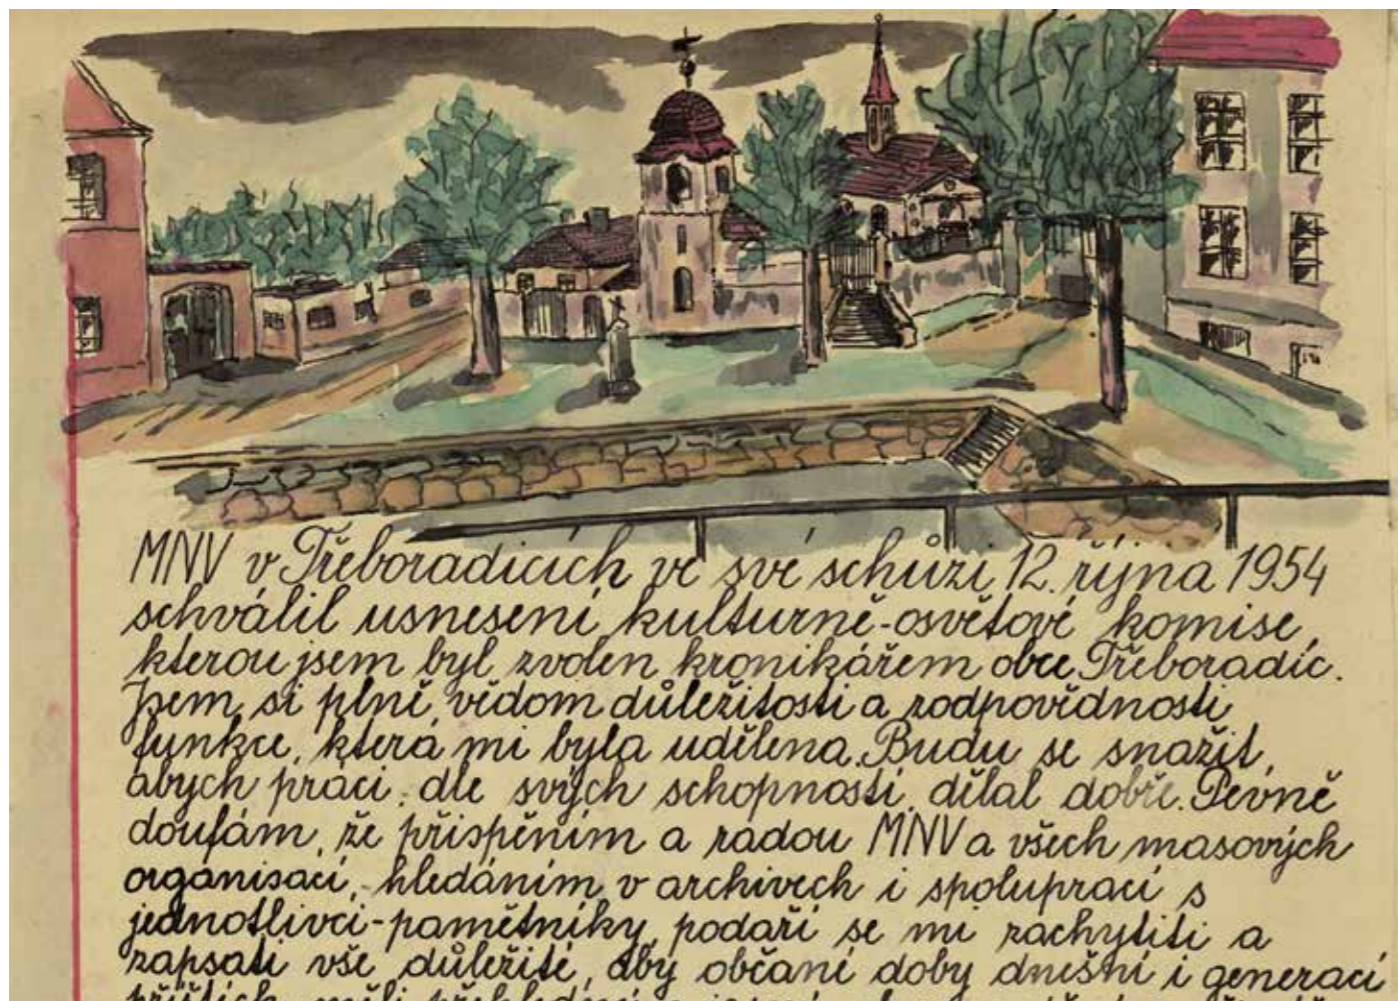 MNV v Třeboradicích ve své schůzi 12. října 1954
schválil usnesení kulturně-osvětové komise,
kterou jsem byl zvolen kronikářem obce Třeboradic.
Jsem si plně vědom důležitosti a zodpovědnosti
funkce, která mi byla udělena. Budu se snažit,
abych práci, dle svých schopností, dělal dobře. Pevně
doufám, že přispěním a radou MNV a všech masových
organisací, hledáním v archivech i spoluprací s
jednotlivci-pamětníky, podaří se mi zachytiti a
zapsati vše důležité, aby občané doby dnešní i generací
příštích měli